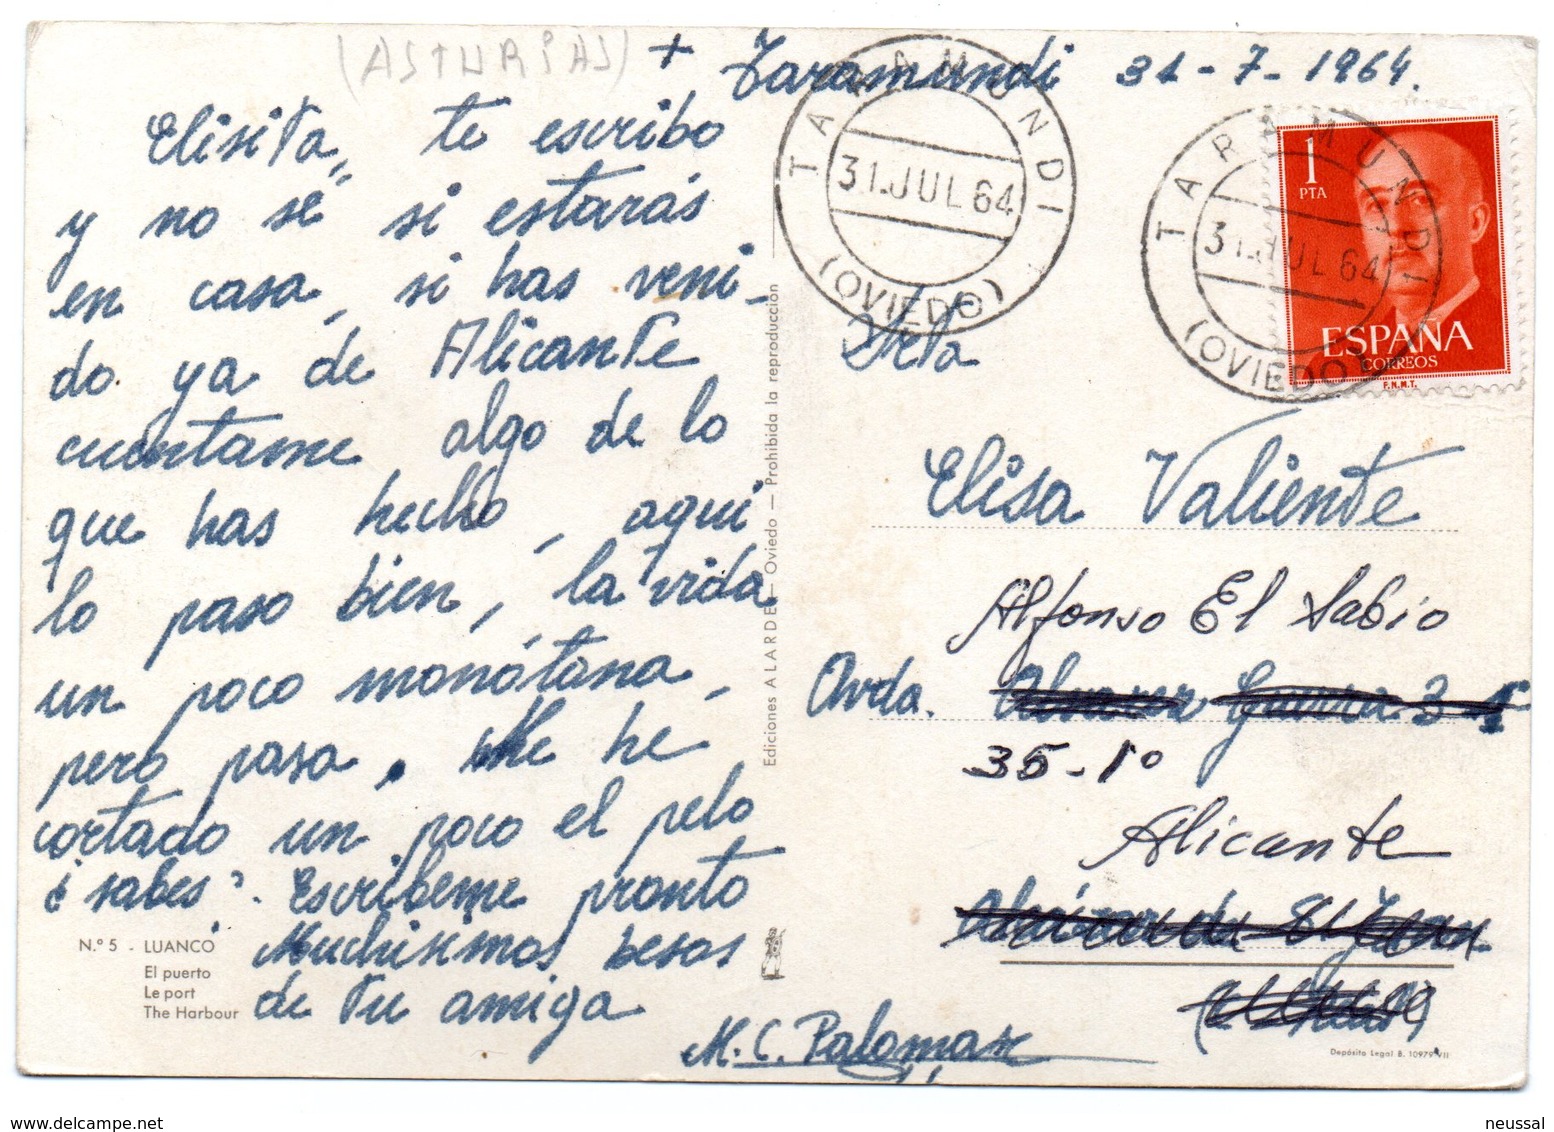 (ASTURIAS)
+ Taramundi 31-7-1964.
Elisita, te escribo
y no sé si estarás
en casa, si has veni-
do ya de Alicante
cuéntame algo de lo
que has hecho, aqui
lo paso bien, la vida
un poco monótona,
pero pasa. Me he
cortado un poco el pelo
¿sabes?. Escribeme pronto
Muchisimos besos
de tu amiga
M.C. Palomar
N.º 5 - LUANCO
El puerto
Le port
The Harbour
Ediciones ALARDE — Oviedo — Prohibida la reproducción
TARAMUNDI
31.JUL 64
(OVIEDO)
TARAMUNDI
31.JUL 64
(OVIEDO)
1
PTA
ESPAÑA
CORREOS
F.N.M.T.
Srta
Elisa Valiente
Alfonso El Sabio
Avda. Alvarez Guerra 3
35-1º
Alicante
Alcázar de S. Juan
Depósito Legal B. 10979-VII
neussal